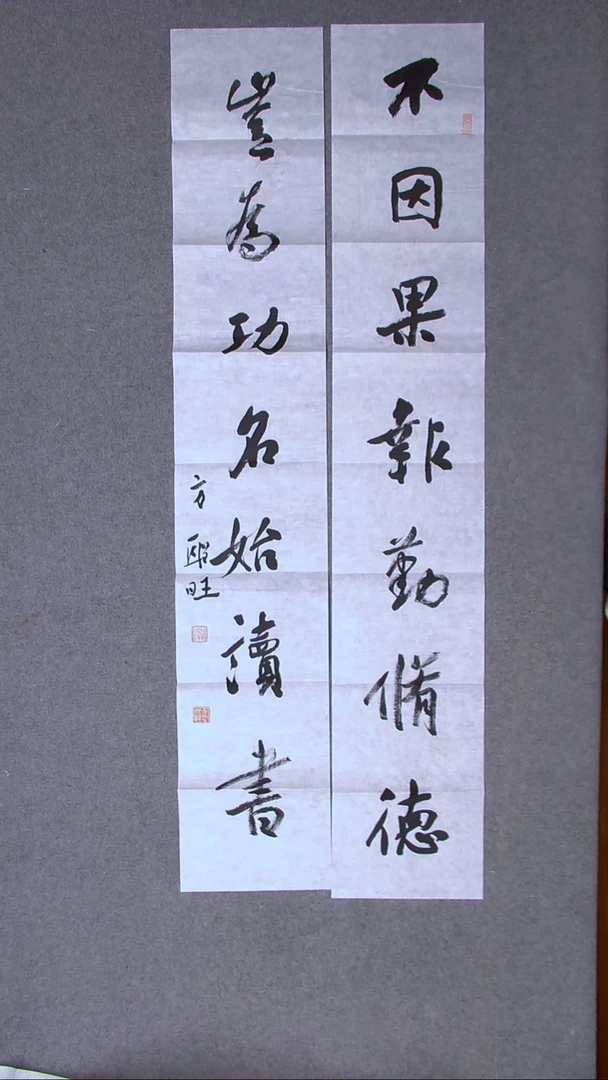 不因果報勤脩德
豈為功名始讀書
方